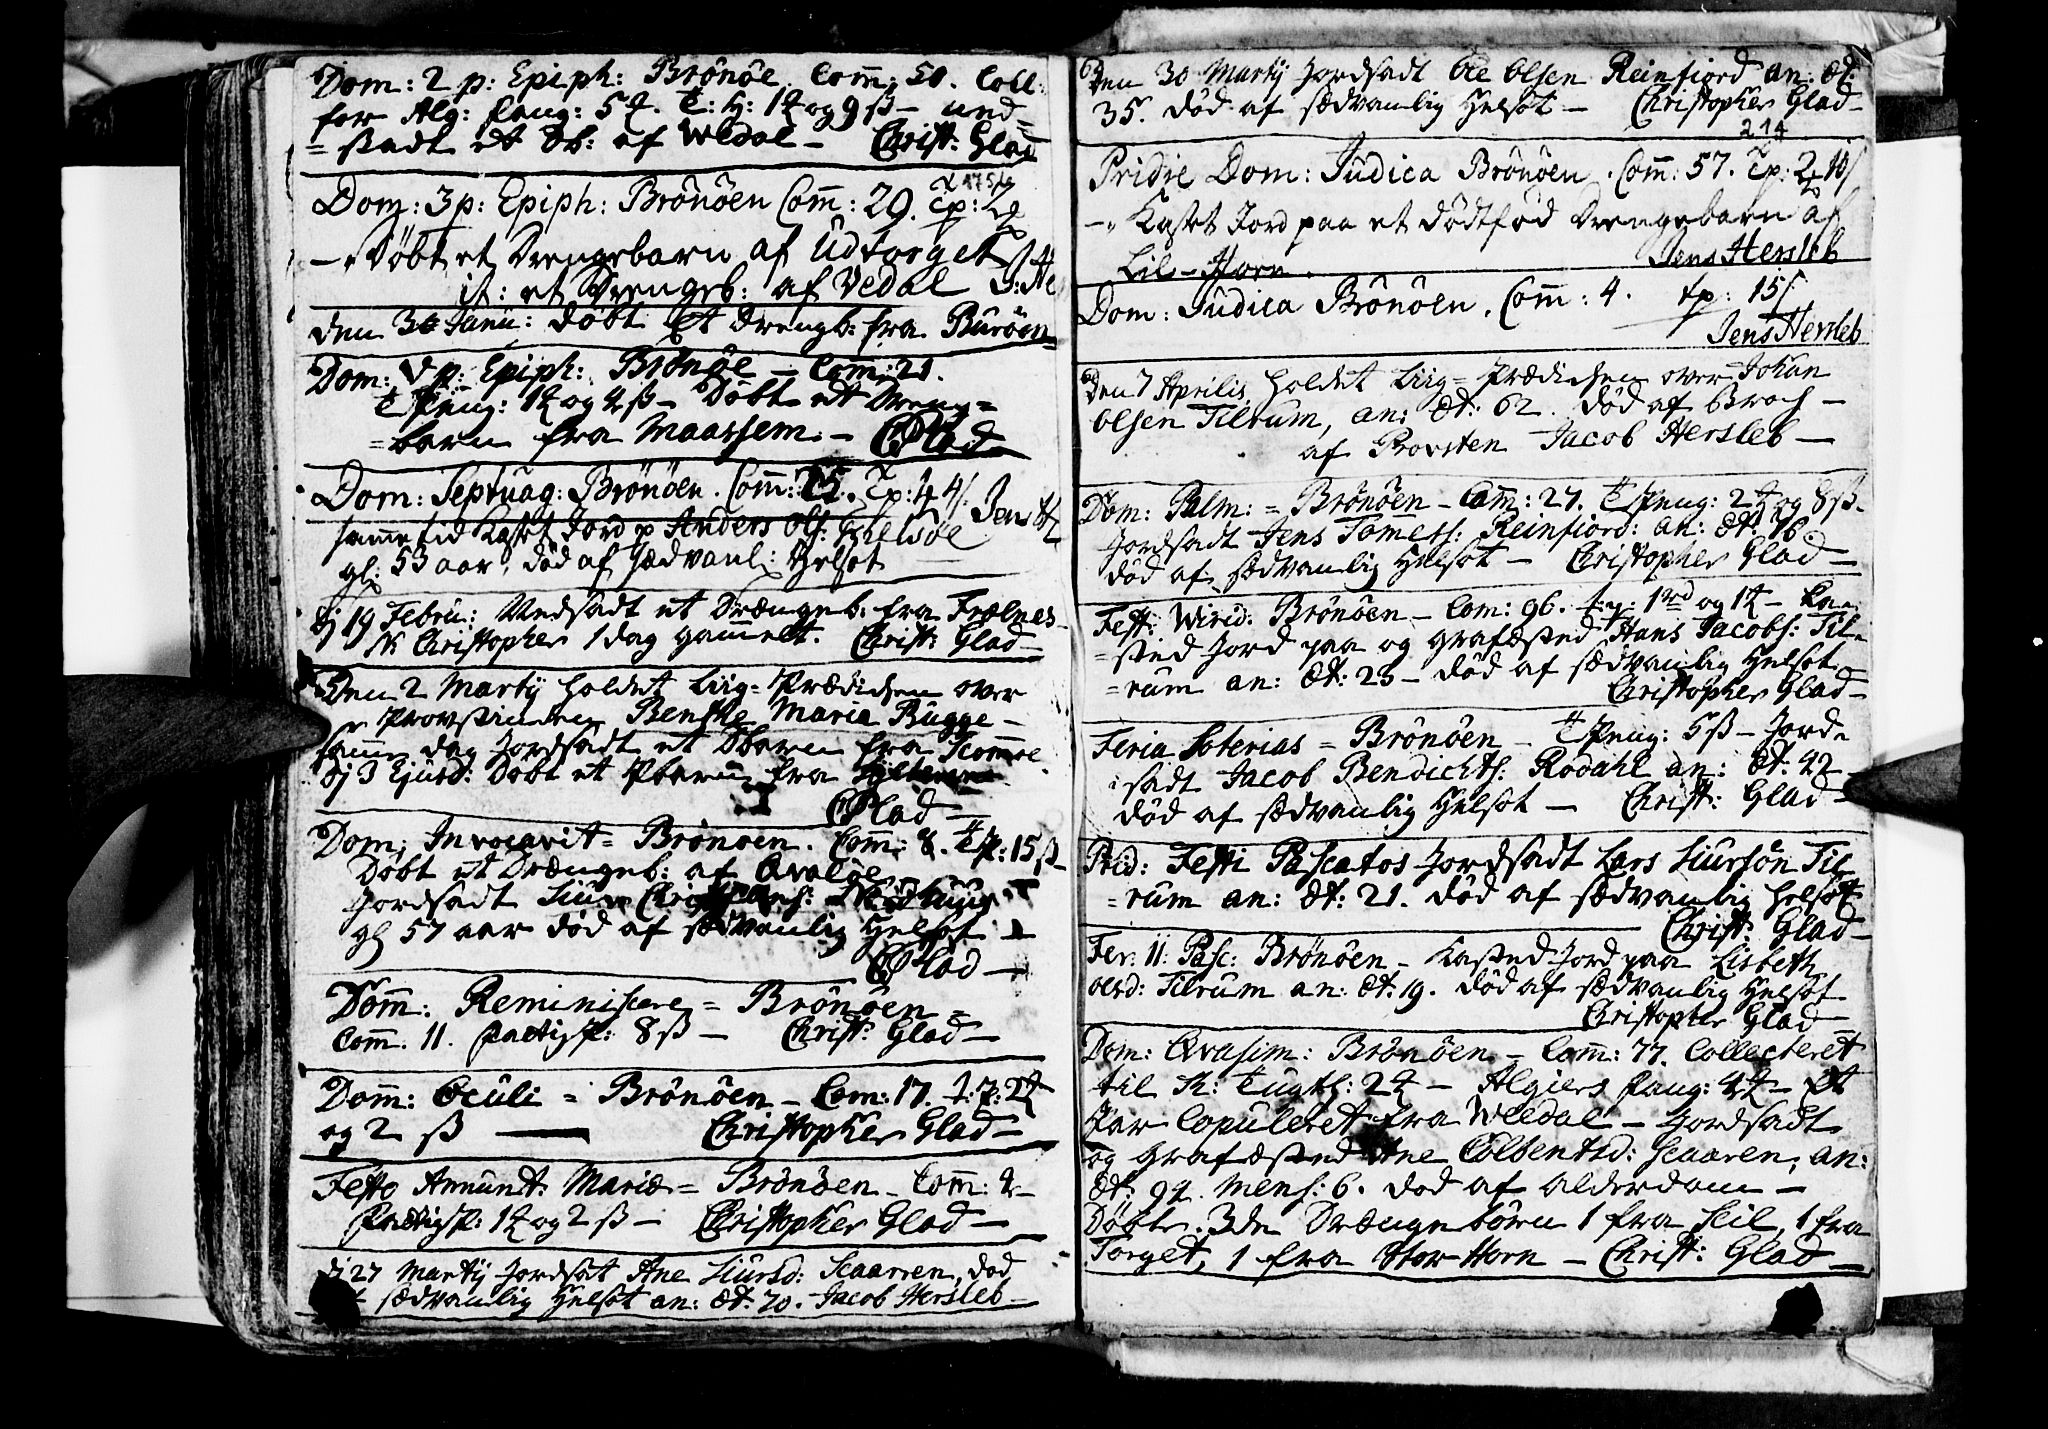 Dom: 2 p: Epiph: Brönöe. Com̄: 50. Coll:
for Alg: fang: 5 . T: H: 1 og 9 ß – und
= stadt et Db: af Wedal – Christ: Glad
175
Dom: 3 p: Epiph: Brönöen Com̄: 29. Tp:
– Döbt et Drengebarn af Udtorget
it: et Drengeb: af Vedal J: He
den 30 Janu: döbt Et drengb: fra Buröen
Dom: V p: Epiph: Brönöe – Com̄: 21.
T Peng: 1 og 4 ß – Döbt et Dreng=
=barn fra Maarsem – C Glad
Dom: Septuag: Brönöen. Com̄: 25. Tp: 4 Jens H
samme tid Kastet Jord p Anders Ols:
gl: 53 aar, död af Sædvanl: Helsot
Dj 19 Febru: Undsadt et Drængeb: fra Frælnes
N: Christopher 1 dag gammelt. Christ: Glad –
Den 2 Martij holdet Liig=Prædichen over
Provstinden Benthe Maria Bugge –
samme dag Jordsadt et Dbarn fra
Dj 3 Ejusd: Döbt et Pbarn fra
C Glad –
Dom: Invocavit = Brönöen. Com̄: 8. T P: 15 ß
Döbt et Drængeb: af Qvalöe
Jordsadt Siur
gl 57 aar död af sædvanlig Helsot –
C Glad –
Dom̄: Reminiscere = Brönöen =
Com̄. 11. fattig P: 8 ß – Christ: Glad –
Dom̄: Oculi = Brönöen – Com: 17. T: P: 2
og 2 ß — Christopher Glad –
Festo Annunt: Mariæ = Brönöen – Com̄: 4 –
Fattig P: 1 og 2 ß – Christopher Glad —
di 27 Martij Jordsat Ane Siursd: Scaarren, död
af sædvanlig Helsot an: æt: 70. Jacob Hersleb –
Den 30 Martij Jordsadt Ole Olsen Reinfiord an: æt:
35. död af sædvanlig Helsot – Christopher Glad –
214
Pridie Dom: Judica Brönöen. Com̄: 57. Tp: 2 10
– Kastet Jord paa et dödtföd Drengebarn af
Lil-Horn. Jens Hersleb
Dom: Judica Brönöen. Com̄: 4. tp: 15
Jens Hersleb
Den 7 Aprilis holdet Liig=Prædichen over Johan
Olsen Tilrum, an: æt: 62. död af Broch –
af Provsten Jacob Hersleb —
Dom: Palm: = Brönöen – Com̄: 27. T Peng: 2 og 8 ß –
Jordsadt Jens Tomess: Reinfiord: an: æt: 76.
död af sædvanlig Helsot – Christopher Glad –
Fest: Wirid: Brönöen – Com: 96. t: p: 1 rd og 1 – Ca=
=sted Jord paa og grafæsted Hans Jacobs: Til=
=rum an: æt: 23 – död af sædvanlig Helsot –
Christopher Glad –
Feria Soterias = Brönöen – T Peng: 5 ß – Jord=
sadt Jacob Bendichts: Rodahl an: æt: 42 –
död af sædvanlig Helsot – Christ: Glad –
Prid: Festi Pascatos Jordsadt Lars Siursön Til
=rum an: æt: 21. död af sædvanlig Helsot
Christ: Glad –
Fer: II: Pasc: Brönöen – Kasted Jord paa Lisbeth
Olsd: Tilrum an: æt: 19. död af sædvanlig Helsot.
Christopher Glad –
Dom: Qvasim: Brönöen – Com̄: 77. Collecteret
til Th: Tugth: 2 – Algiers fang: 4 – Et
Par Copuleret fra Weedal – Jordsadt
og grafæsted Ane Colbentsd: Scaaren, an:
æt: 94. Mens: 6. död af alderdom –
Döbt. 3de Drængebörn 1 fra Scil, 1 fra
Torget, 1 fra Stor Horn – Christ: Glad –